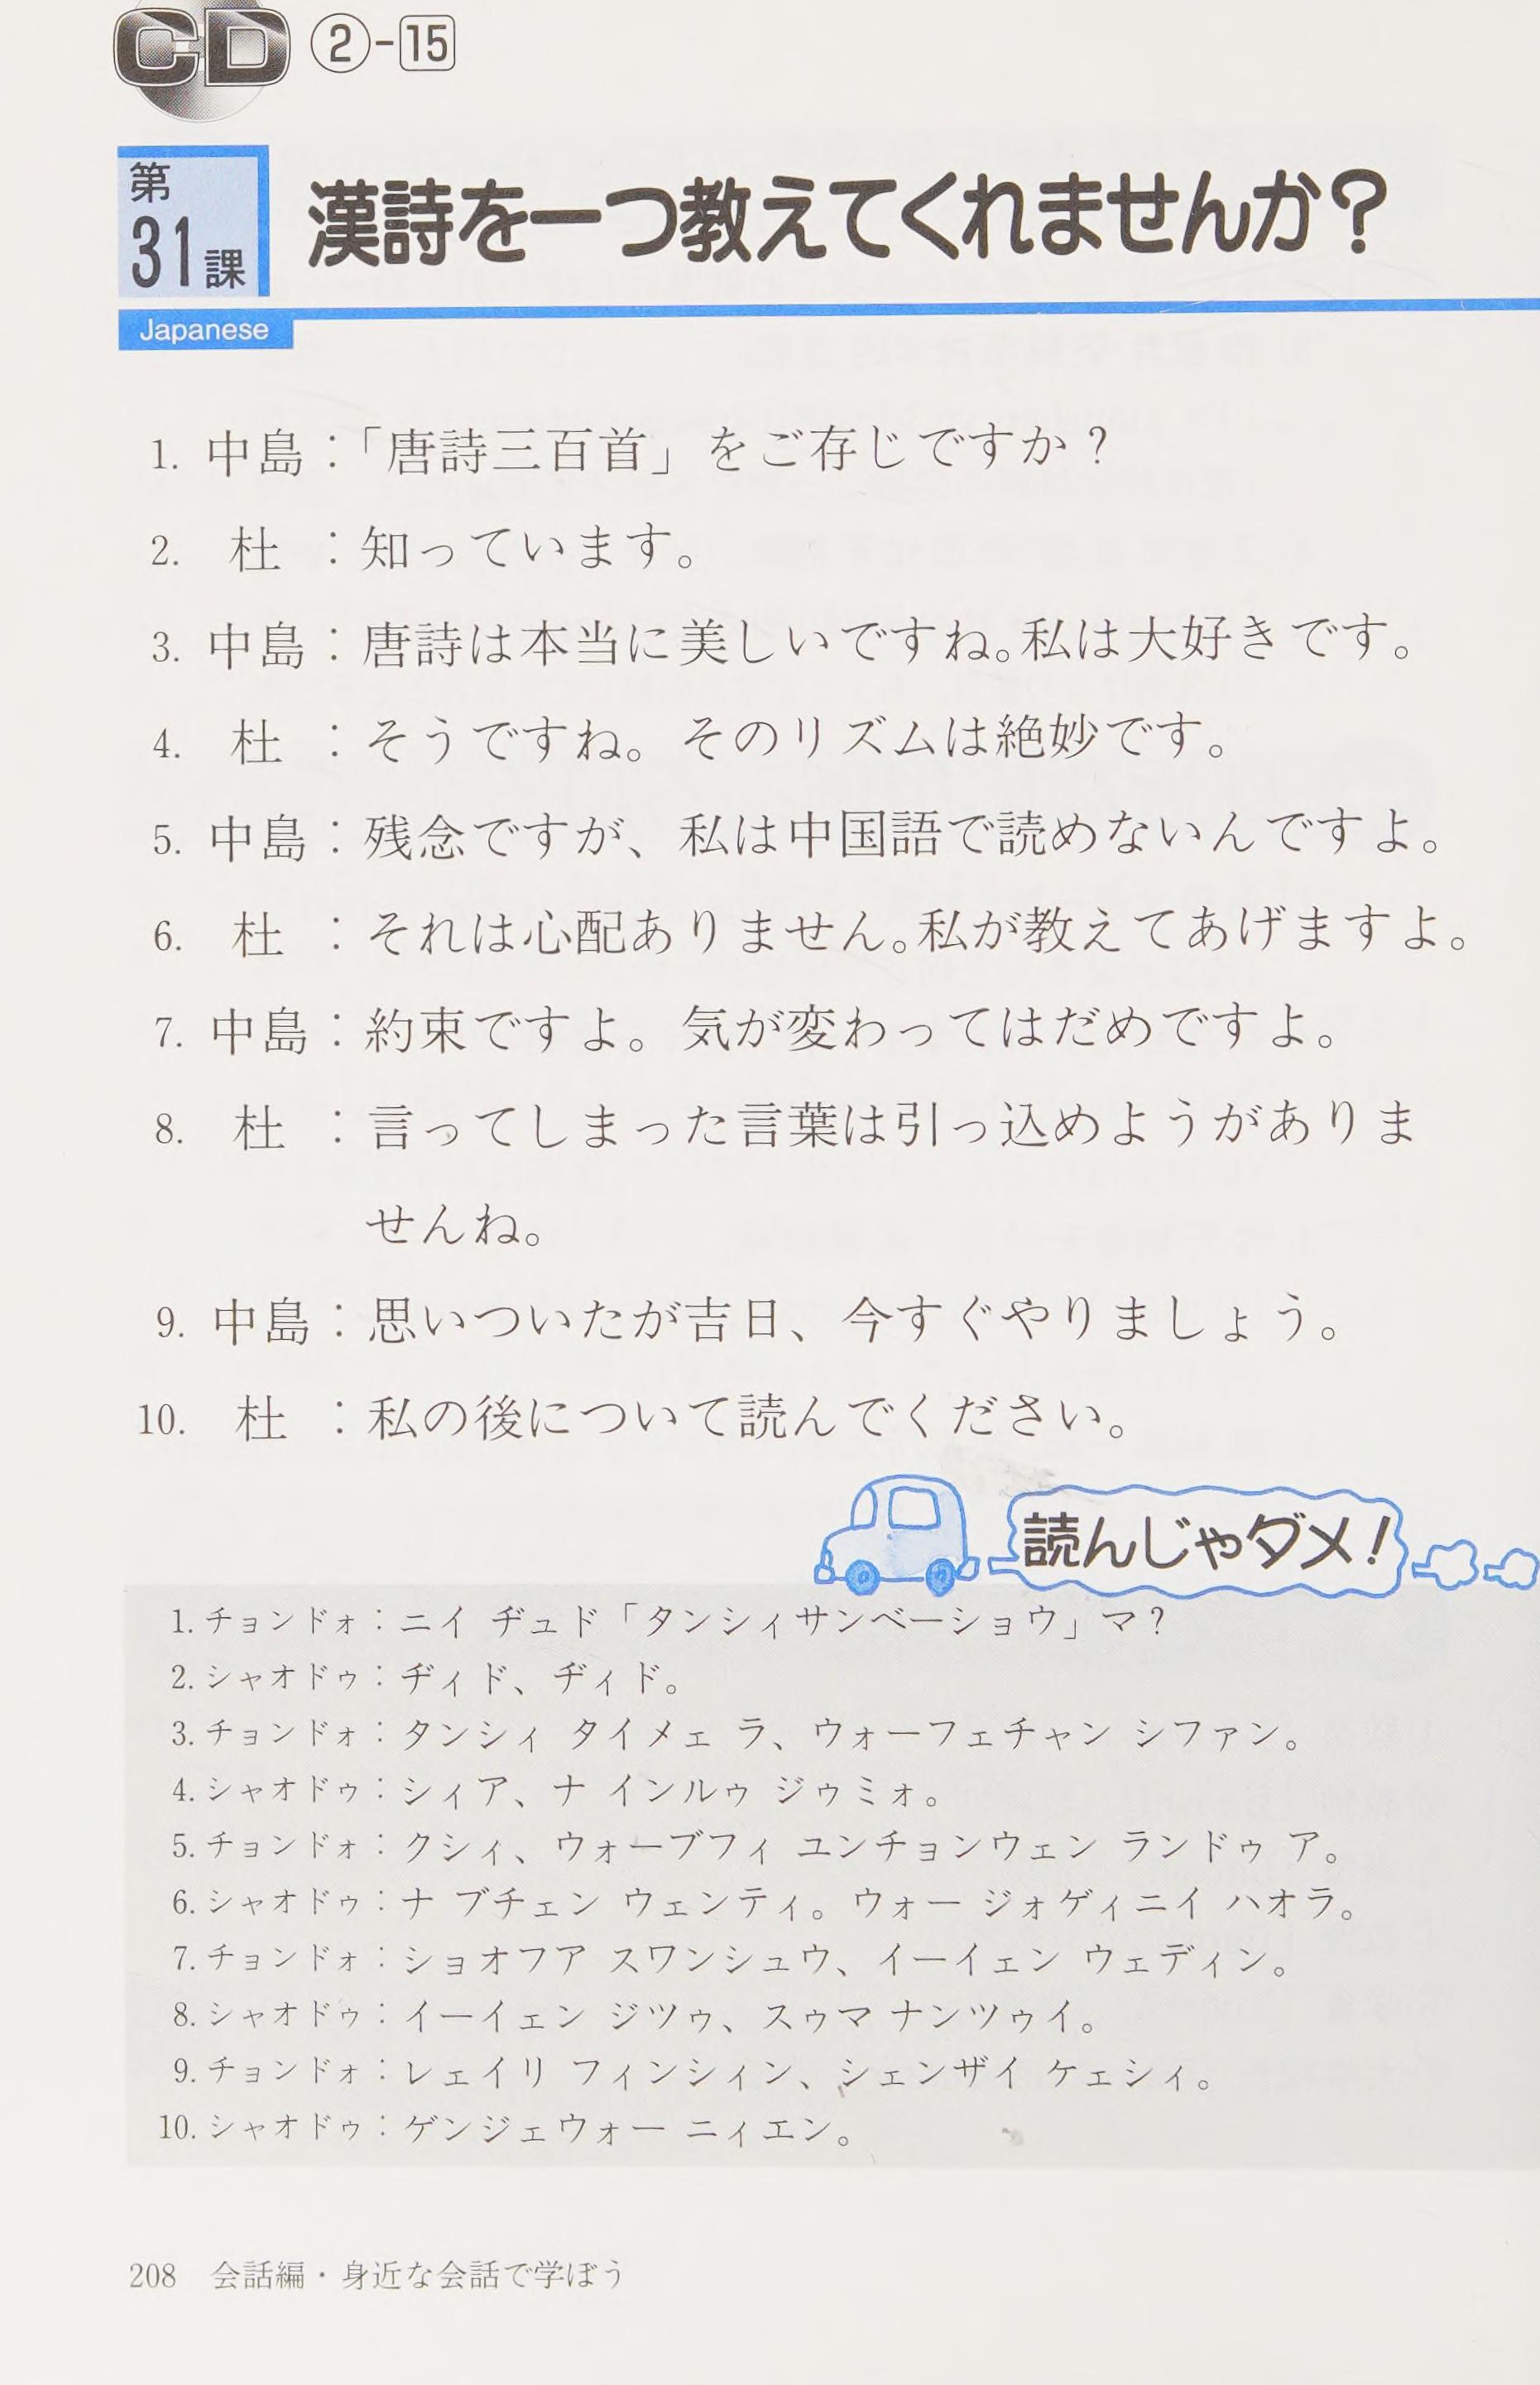 CD ②-15
第31課 漢詩を一つ教えてくれませんか？
Japanese
1. 中島：「唐詩三百首」をご存じですか？
2. 杜：知っています。
3. 中島：唐詩は本当に美しいですね。私は大好きです。
4. 杜：そうですね。そのリズムは絶妙です。
5. 中島：残念ですが、私は中国語で読めないんですよ。
6. 杜：それは心配ありません。私が教えてあげますよ。
7. 中島：約束ですよ。気が変わってはだめですよ。
8. 杜：言ってしまった言葉は引っ込めようがありま
せんね。
9. 中島：思いついたが吉日、今すぐやりましょう。
10. 杜：私の後について読んでください。
読んじゃダメ！
1. チョンドォ：ニイ ヂュド「タンシィサンベーショウ」マ？
2. シャオドゥ：ヂィド、ヂィド。
3. チョンドォ：タンシィ タイメェ ラ、ウォーフェチャン シファン。
4. シャオドゥ：シィア、ナ インルゥ ジゥミォ。
5. チョンドォ：クシィ、ウォーブフィ ユンチョンウェン ランドゥ ア。
6. シャオドゥ：ナ ブチェン ウェンティ。ウォー ジォゲィニイ ハオラ。
7. チョンドォ：ショオフア スワンシュウ、イーイェン ウェディン。
8. シャオドゥ：イーイェン ジツゥ、スゥマ ナンツゥイ。
9. チョンドォ：レェイリ フィンシィン、シェンザイ ケェシィ。
10. シャオドゥ：ゲンジェウォー ニィエン。
208 会話編・身近な会話で学ぼう